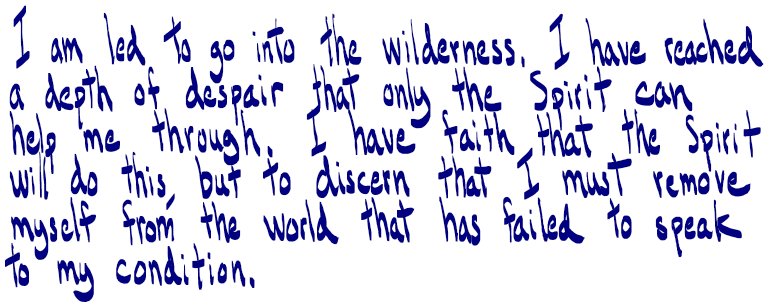 I am led to go into the wilderness. I have reached
a depth of despair that only the Spirit can
help me through. I have faith that the Spirit
will do this, but to discern that I must remove
myself from the world that has failed to speak
to my condition.